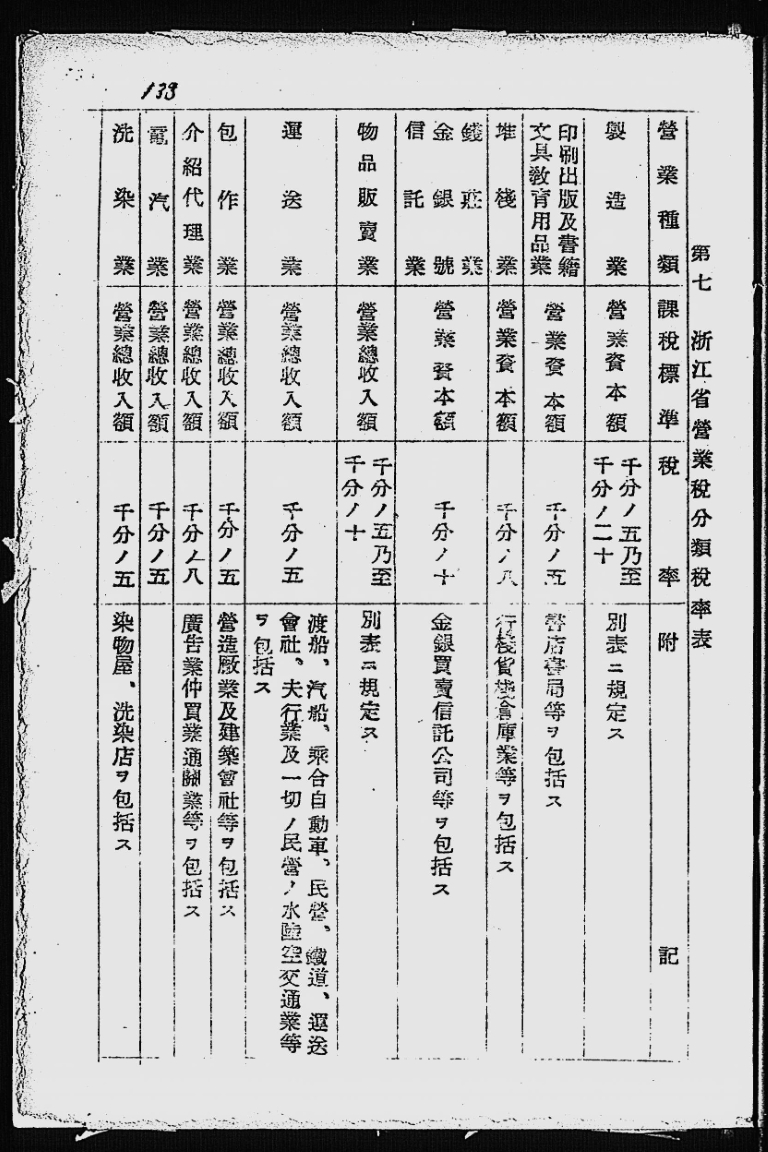 133
第七 浙江省營業稅分類稅率表
營業種類 課稅標準 稅率 附記
製造業 營業資本額 千分ノ五乃至千分ノ二十 別表ニ規定ス
印刷出版及書籍文具敎育用品業 營業資本額 千分ノ五 書店書局等ヲ包括ス
堆棧業 營業資本額 千分ノ八 行棧貨棧倉庫業等ヲ包括ス
錢莊業
金銀號
信託業 營業資本額 千分ノ十 金銀買賣信託公司等ヲ包括ス
物品販賣業 營業總收入額 千分ノ五乃至千分ノ十 別表ニ規定ス
運送業 營業總收入額 千分ノ五 渡船、汽船、乘合自動車、民營、鐵道、運送
會社、夫行業及一切ノ民營ノ水陸空交通業等
ヲ包括ス
包作業 營業總收入額 千分ノ五 營造廠業及建築會社等ヲ包括ス
介紹代理業 營業總收入額 千分ノ八 廣吿業仲買業通關業等ヲ包括ス
電汽業 營業總收入額 千分ノ五
洗染業 營業總收入額 千分ノ五 染物屋、洗染店ヲ包括ス